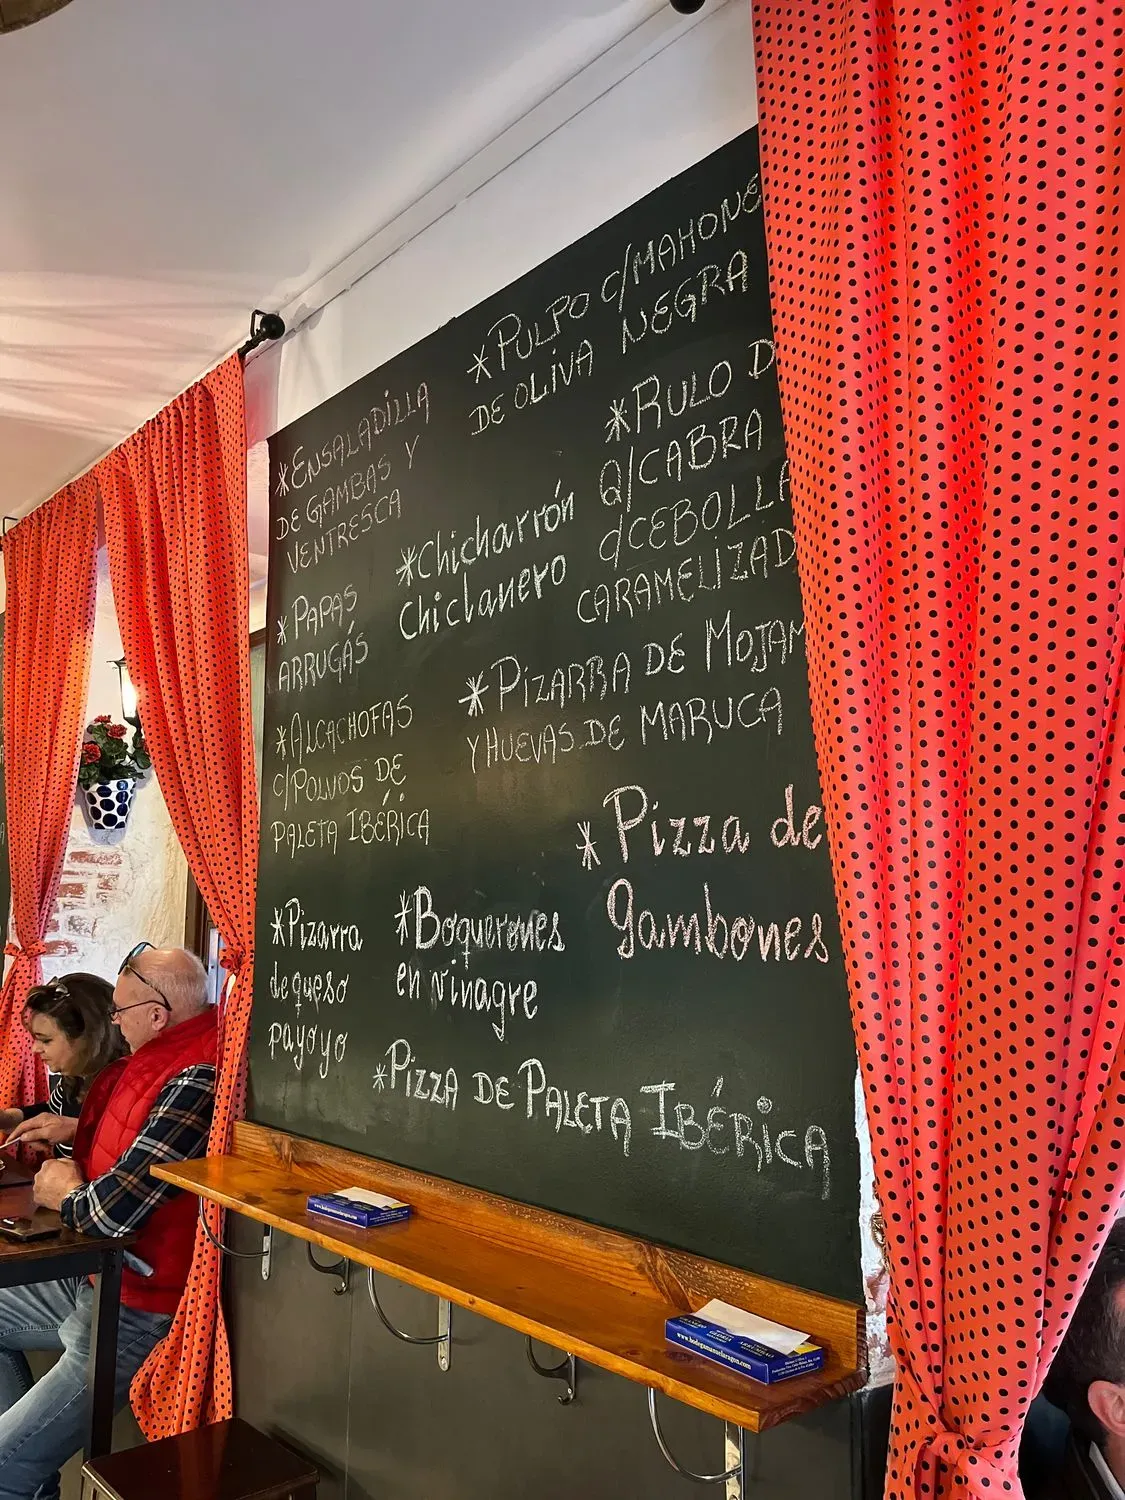 *ENSALADILLA
DE GAMBAS Y
VENTRESCA
*PAPAS
ARRUGÁS
*ALCACHOFAS
C/POLVOS DE
PALETA IBÉRICA
*Pizarra
de queso
payoyo
*PULPO C/MAHONE
DE OLIVA NEGRA
*Chicharrón
Chiclanero
*RULO D
Q/CABRA
C/CEBOLLA
CARAMELIZAD
*PIZARRA DE MOJAM
Y HUEVAS DE MARUCA
*Pizza de
gambones
*Boquerones
en vinagre
*PIZZA DE PALETA IBÉRICA
www.bodegamanuelaragon.com
GLORIA
ARRUMBAO
www.bodegamanuelaragon.com